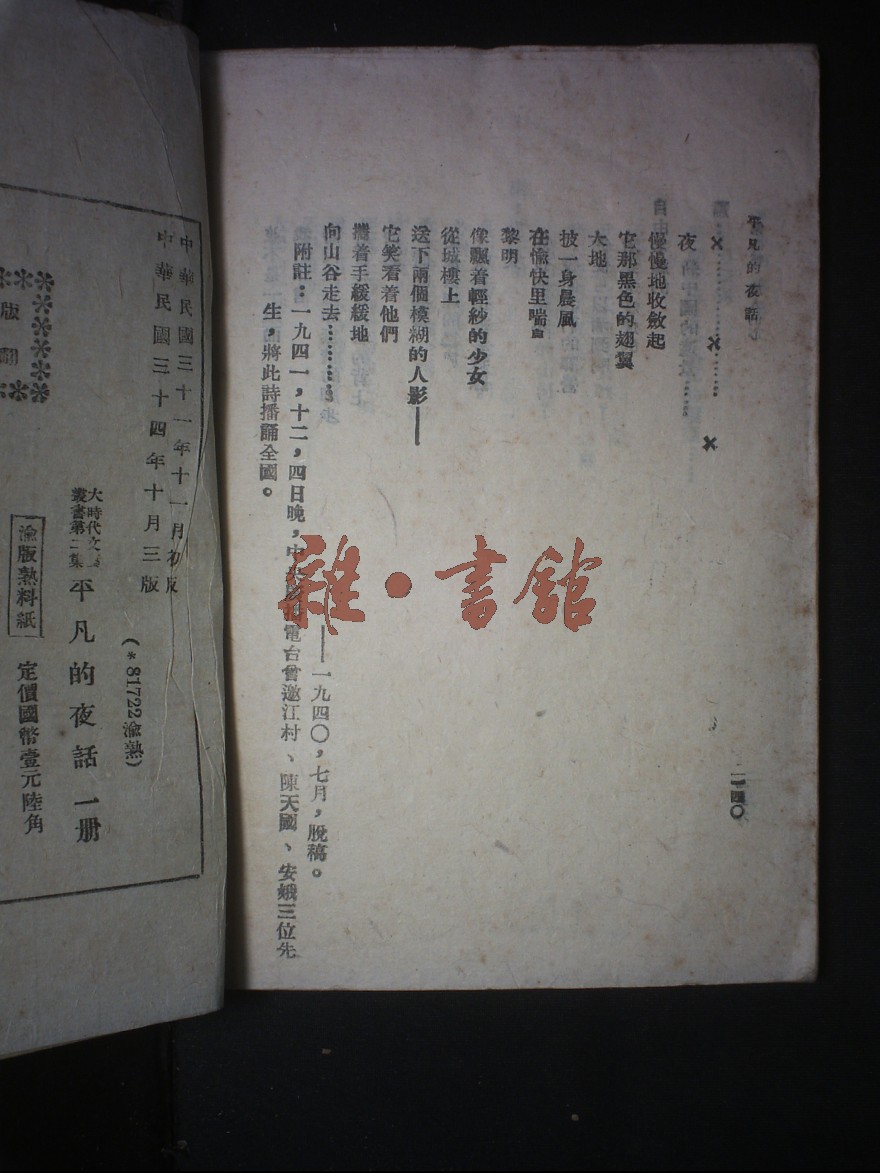 平凡的夜話
一四〇
自由
夜
慢慢地收斂起
它那黑色的翅翼
大地
披一身晨風
在愉快里喘息
黎明
像飄着輕紗的少女
從城樓上
送下兩個模糊的人影——
它笑看着他們
攜着手緩緩地
向山谷走去…………
——一九四〇，七月，脫稿。
附註：一九四一，十二，四日晚，中央 電台曾邀江村、陳天國、安娥三位先
生，將此詩播誦全國。
雜·書館
中華民國三十一年十一月初版
中華民國三十四年十月三版
(*81722渝熟)
大時代文藝
叢書第二集
平凡的夜話一册
渝版熟料紙
定價國幣壹元陸角
版
翻